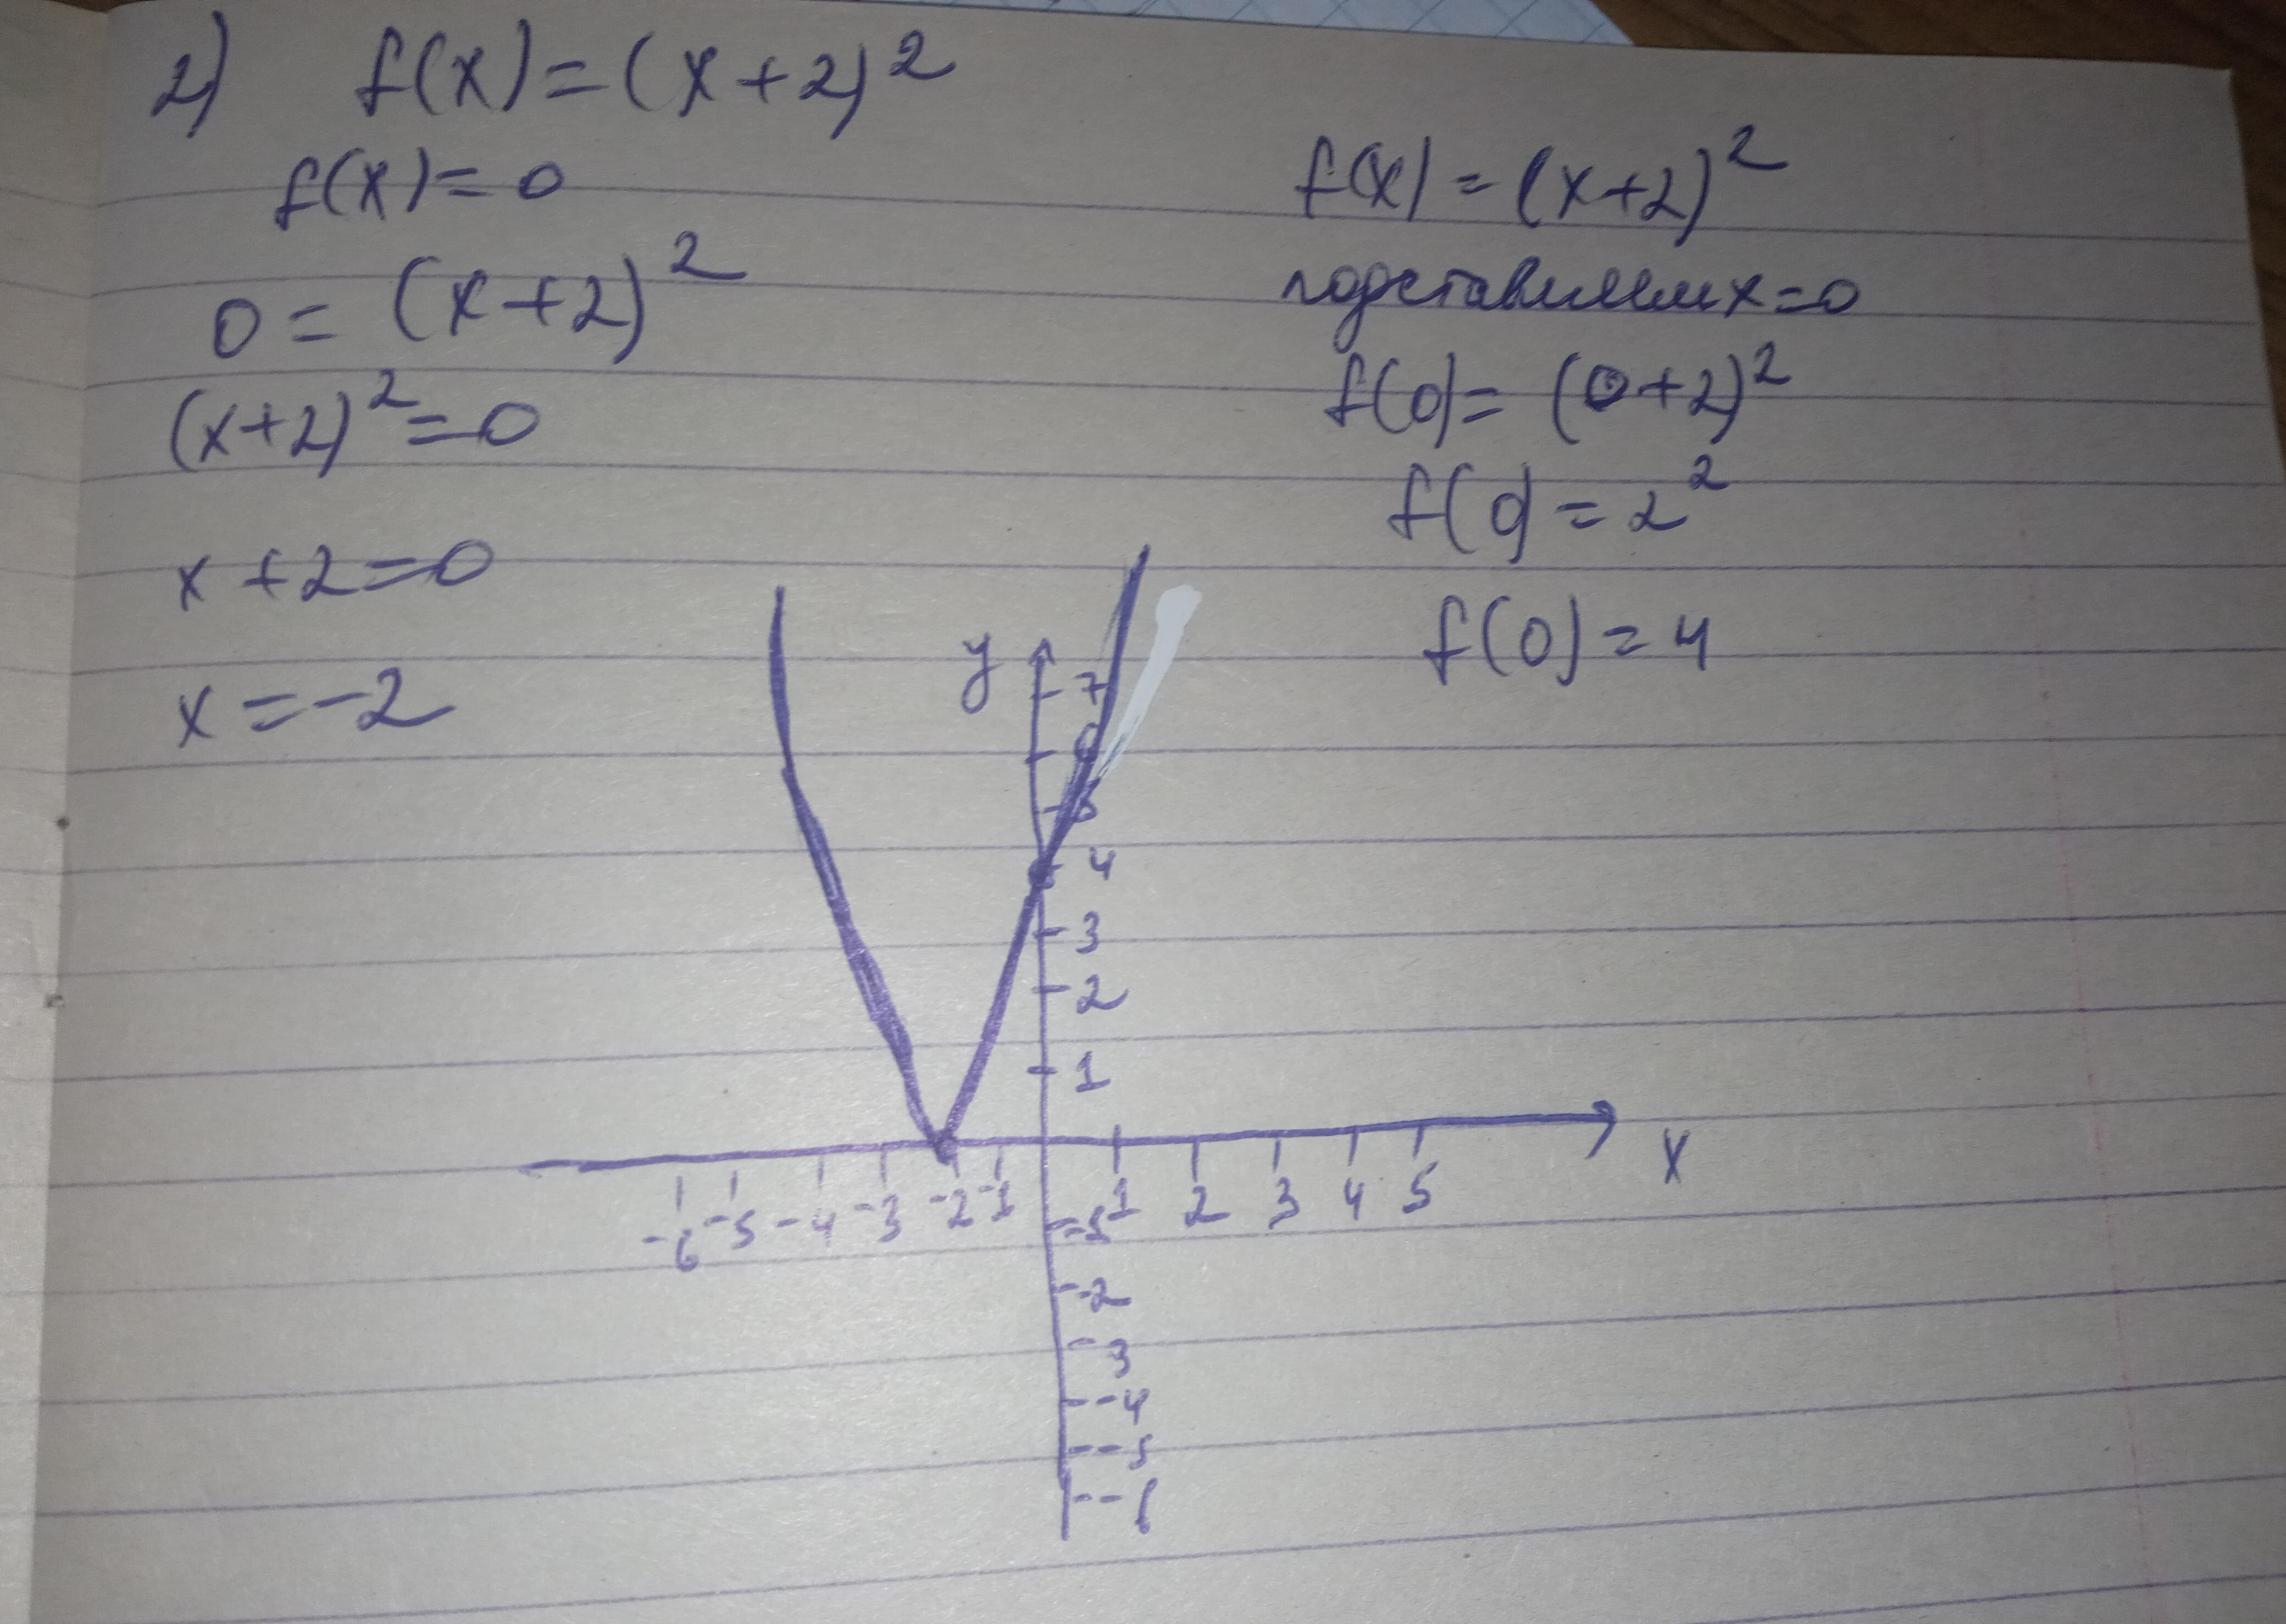 2) f(x)=(x+2)²
f(x)=0
0=(x+2)²
(x+2)²=0
x+2=0
x=-2
f(x)=(x+2)²
подставим x=0
f(0)=(0+2)²
f(0)=2²
f(0)=4
y
7
6
5
4
3
2
1
-6 -5 -4 -3 -2 -1 1 2 3 4 5 X
-1
-2
-3
-4
-5
-6